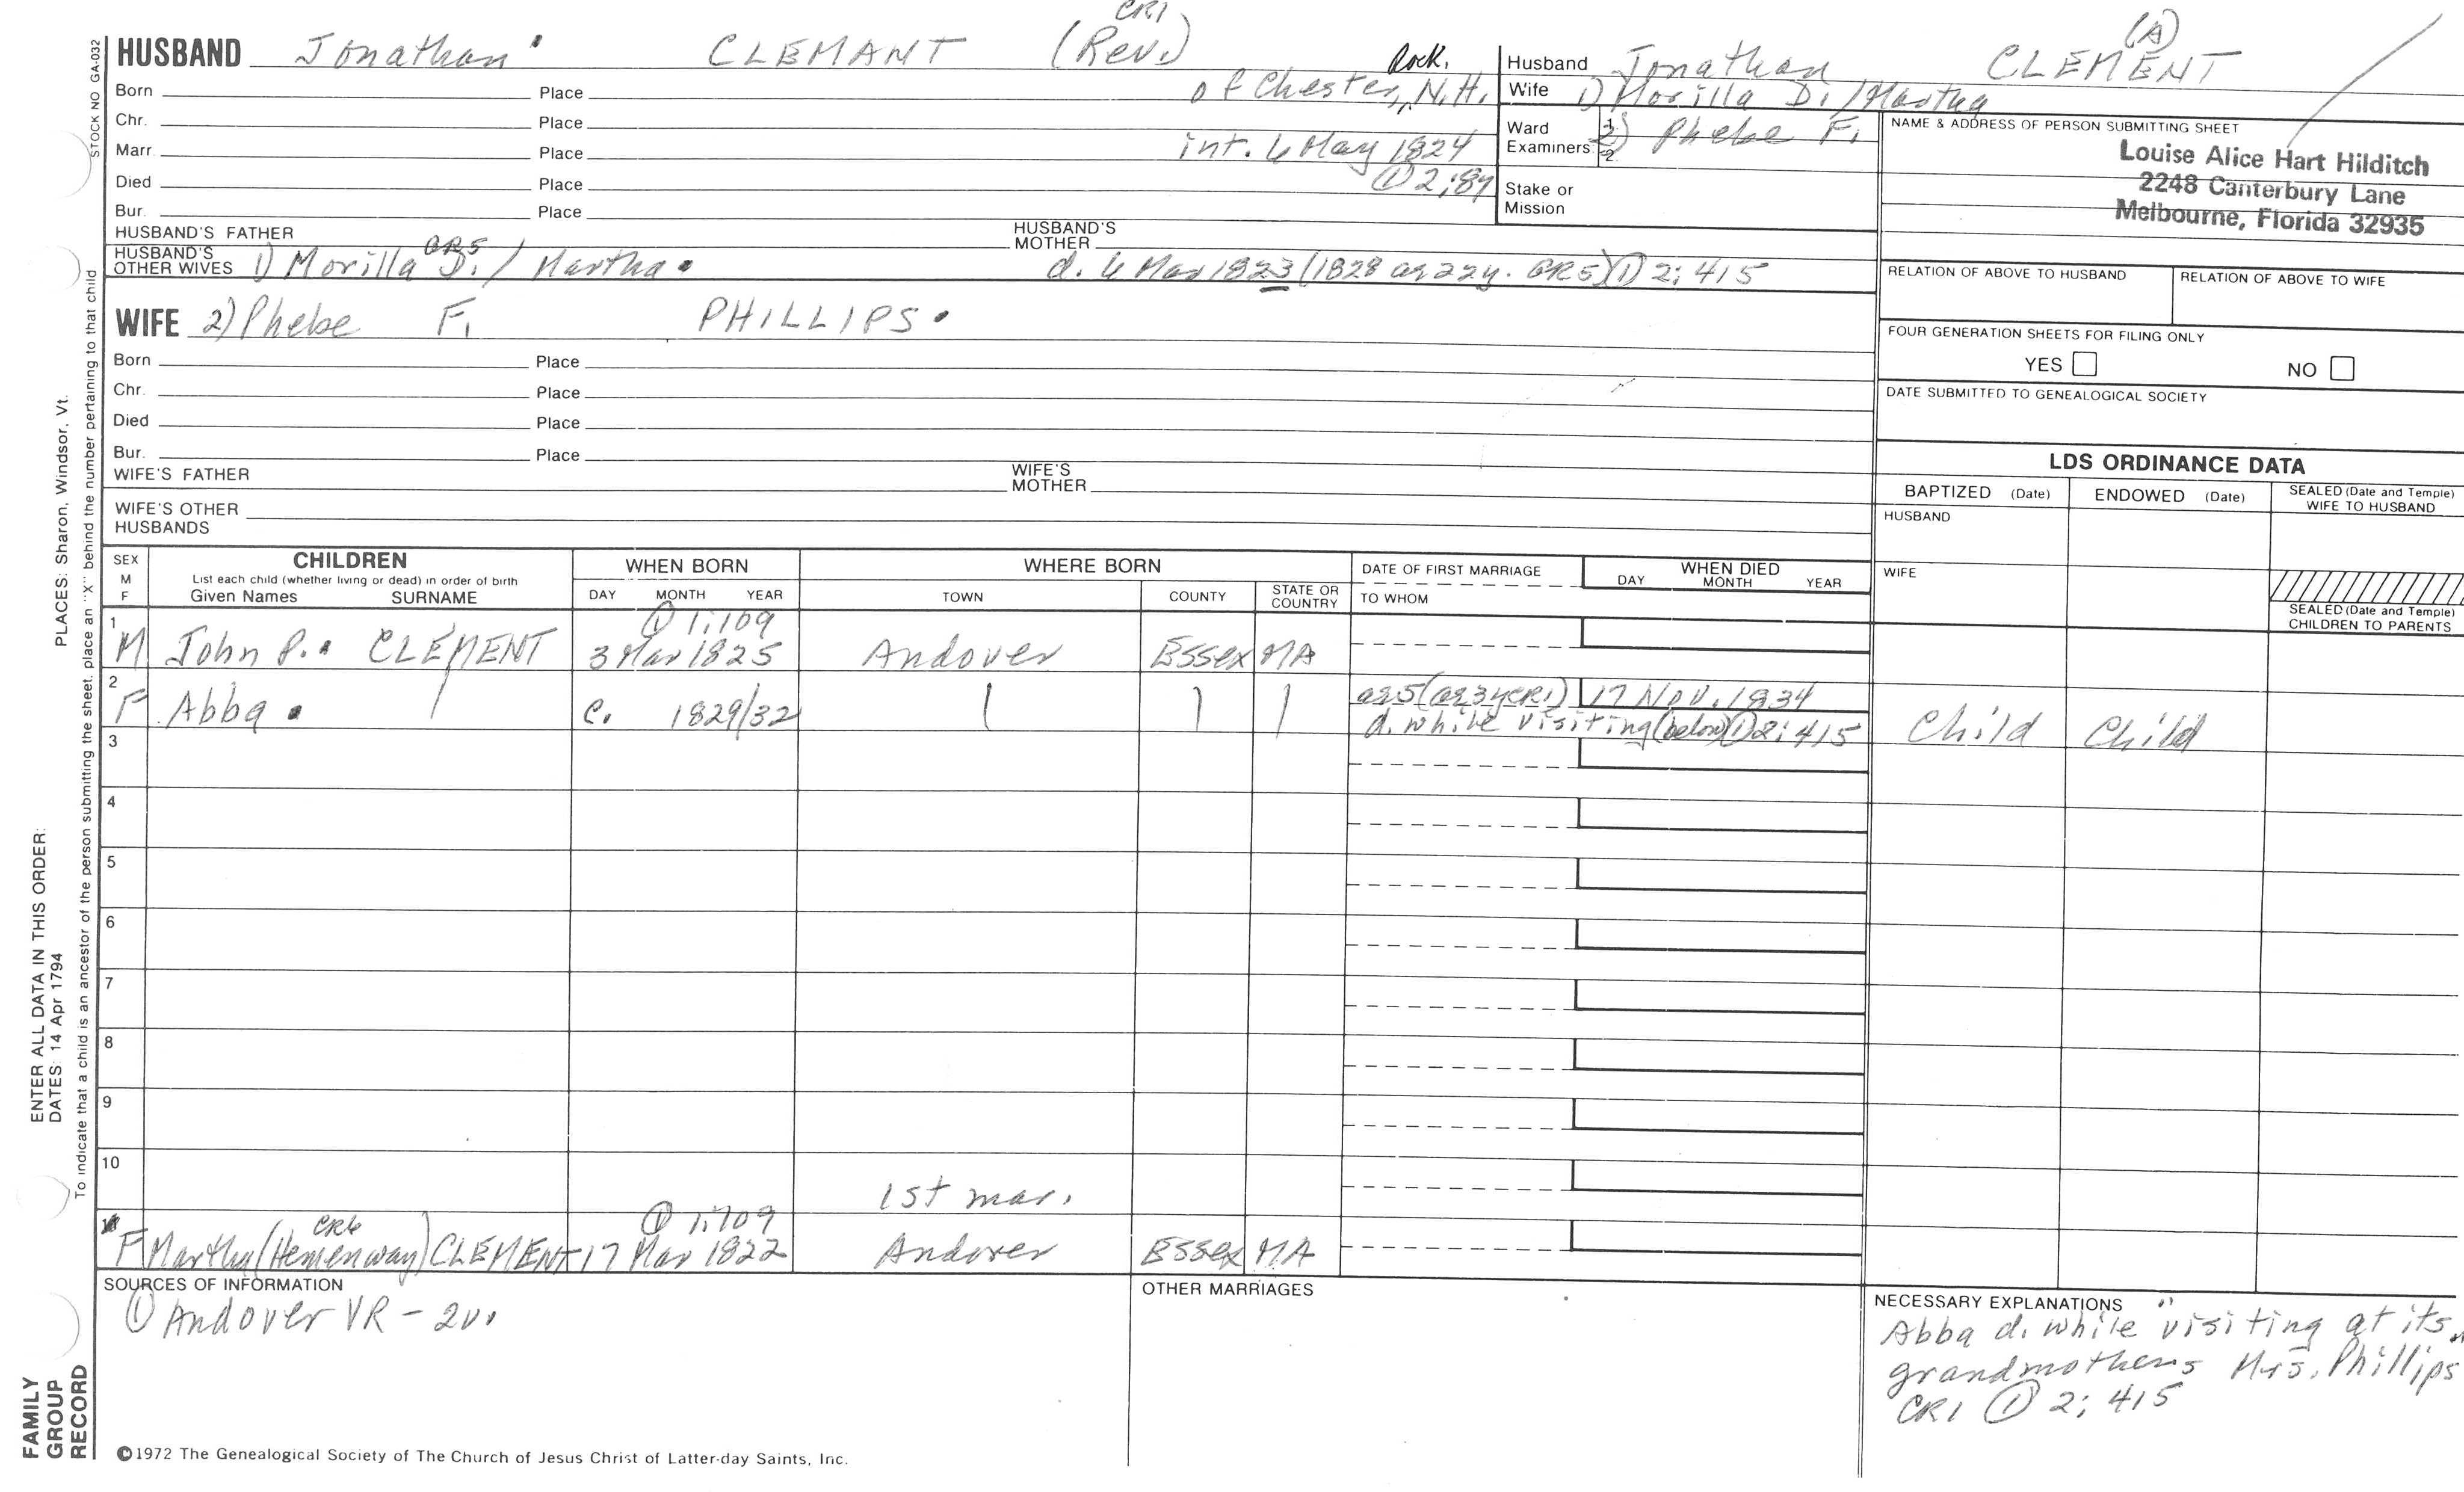 CR1
HUSBAND Jonathan CLEMANT (Rev.)
Born Place of Chester, Rock. N.H.
Chr. Place
Marr. Place int. 6 May 1824
Died Place ① 2:87
Bur. Place
HUSBAND'S FATHER HUSBAND'S MOTHER
HUSBAND'S OTHER WIVES 1) Morilla D. / Martha d. 6 Mar 1823 (1828 ag 22y. GR5) ① 2:415
GR5
WIFE 2) Phebe F. PHILLIPS
Born Place
Chr. Place
Died Place
Bur. Place
WIFE'S FATHER WIFE'S MOTHER
WIFE'S OTHER HUSBANDS
(A)
Husband Jonathan CLEMENT
Wife 1) Morilla D. / Martha
Ward Examiners: 1. 2. 2) Phebe F.
Stake or Mission
NAME & ADDRESS OF PERSON SUBMITTING SHEET
Louise Alice Hart Hilditch
2248 Canterbury Lane
Melbourne, Florida 32935
RELATION OF ABOVE TO HUSBAND RELATION OF ABOVE TO WIFE
FOUR GENERATION SHEETS FOR FILING ONLY
YES NO
DATE SUBMITTED TO GENEALOGICAL SOCIETY
LDS ORDINANCE DATA
BAPTIZED (Date) ENDOWED (Date) SEALED (Date and Temple) WIFE TO HUSBAND
HUSBAND
WIFE
SEALED (Date and Temple) CHILDREN TO PARENTS
SEX M F
CHILDREN
List each child (whether living or dead) in order of birth
Given Names SURNAME
WHEN BORN
DAY MONTH YEAR
WHERE BORN
TOWN COUNTY STATE OR COUNTRY
DATE OF FIRST MARRIAGE
TO WHOM
WHEN DIED
DAY MONTH YEAR
① 1:109
1 M John P. CLEMENT 3 Mar 1825 Andover Essex MA
2 F Abba c. 1829/32 ag 5 (ag 3y CR1) 17 Nov. 1834
d. while visiting (below) ① 2:415 Child Child
3
4
5
6
7
8
9
10
1st mar.
CR6 ① 1:109
F Martha (Hemenway) CLEMENT 17 Mar 1822 Andover Essex MA
SOURCES OF INFORMATION
① Andover VR - 2v.
OTHER MARRIAGES
NECESSARY EXPLANATIONS
Abba d. while "visiting at its
grandmothers Mrs. Phillips"
CR1 ① 2:415
©1972 The Genealogical Society of The Church of Jesus Christ of Latter-day Saints, Inc.
STOCK NO GA-032
To indicate that a child is an ancestor of the person submitting the sheet, place an "X" behind the number pertaining to that child
ENTER ALL DATA IN THIS ORDER:
DATES: 14 Apr 1794 PLACES: Sharon, Windsor, Vt.
FAMILY
GROUP
RECORD